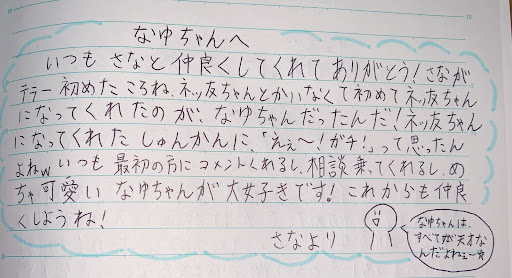 なゆちゃんへ
いつもさなと仲良くしてくれてありがとう!さなが
テラー初めたころね、ネッ友ちゃんとかいなくて初めてネッ友ちゃん
になってくれたのが、なゆちゃんだったんだ!ネッ友ちゃん
になってくれたしゅんかんに、「えぇ〜!ガチ!」って思ったん
よねwいつも最初の方にコメントくれるし、相談乗ってくれるし、め
ちゃ可愛いなゆちゃんが大好きです!これからも仲良
くしようね!
さなより
なゆちゃんは、
すべてが天才な
んだよねぇ〜☆